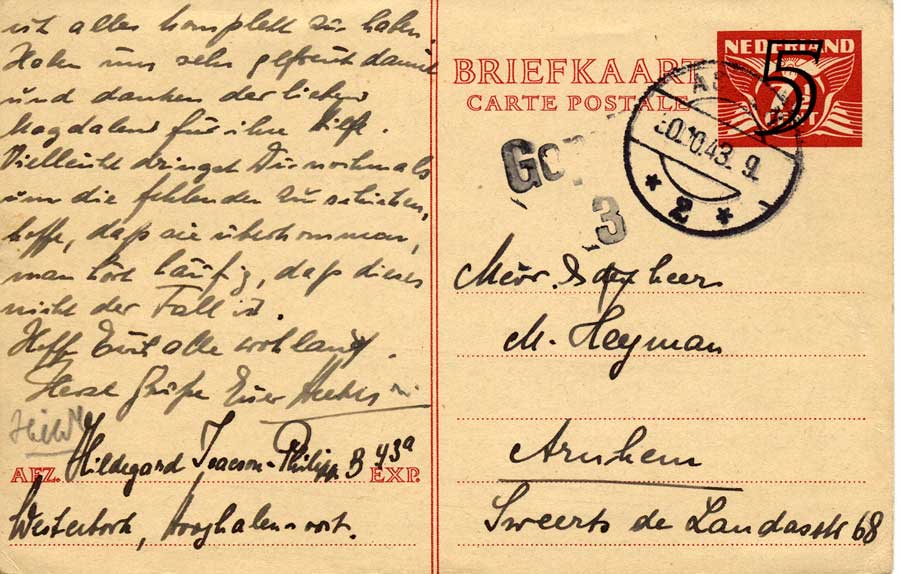 ich alles komplett zu haben.
Haben uns sehr gefreut damit
und danken der lieben
Magdalena für ihre Hilfe.
Vielleicht dringst Du nochmals
um die fehlenden zu schicken,
hoffe, daß sie überkommen,
man hört häufig, daß dieses
nicht der Fall ist.
Hoffe Euch alle wohlauf.
Herzl Grüße Euer
AFZ. Hildegard Isacson-Philipp. B 43a EXP.
Westerbork, Hooghalen-oost.
BRIEFKAART
CARTE POSTALE
NEDERLAND
5
30.10.43. 9
2
3
Mevr. & den heer
M. Heyman
Arnhem
Sweerts de Landasstr 68